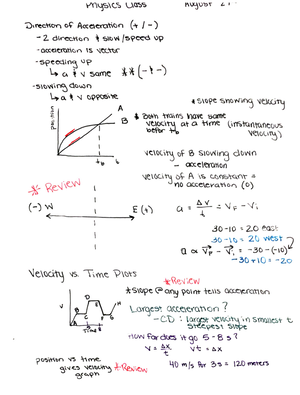 Physics Class August 2
Direction of Acceleration (+ / -)
- 2 direction & slow / speed up
- acceleration is vector
- speeding up
↳ a & v same ** (- & -)
- slowing down
↳ a & v opposite
* slope showing velocity
position
A
B
t₀
t
* Both trains have same
velocity at a time (instantaneous
velocity)
velocity of B slowing down
- acceleration
velocity of A is constant =
no acceleration (0)
* Review
(-) W
E (+)
a = Δv / t = VF - Vi
30 - 10 = 20 east
30 - 10 = 20 west
a ∝ VF - Vi = -30 - (-10)
-30 + 10 = -20
Velocity vs. Time Plots
* Review
* Slope @ any point tells acceleration
V
C
D
E
G
H
Time
Largest acceleration?
- CD: largest velocity in smallest t
steepest slope
How far does it go 5 - 8 s?
V = Δx / t Vt = Δx
40 m/s for 3 s = 120 meters
position vs time
gives velocity * Review
graph